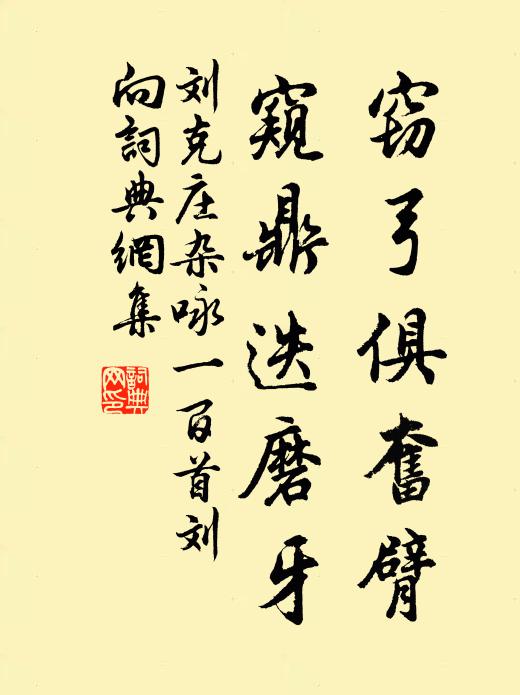 窃弓俱奮臂
窺鼎迭磨牙
刘克庄杂咏一百首刘
向詞典網集
詞典
网印